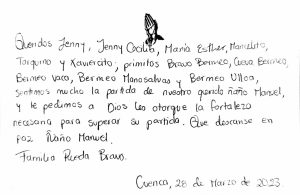 Queridos Jenny, Jenny Cecilia, María Esther, Marcelito,
Tarquino y Xaviercito; primitos Bravo Bermeo, Cueva Bermeo,
Bermeo Vaca, Bermeo Manosalvas y Bermeo Ulloa,
sentimos mucho la partida de nuestro querido ñaño Manuel,
y le pedimos a Dios les otorgue la fortaleza
necesaria para superar su partida. Que descanse en
paz Ñaño Manuel.
Familia Rueda Bravo.
Cuenca, 28 de Marzo de 2023.